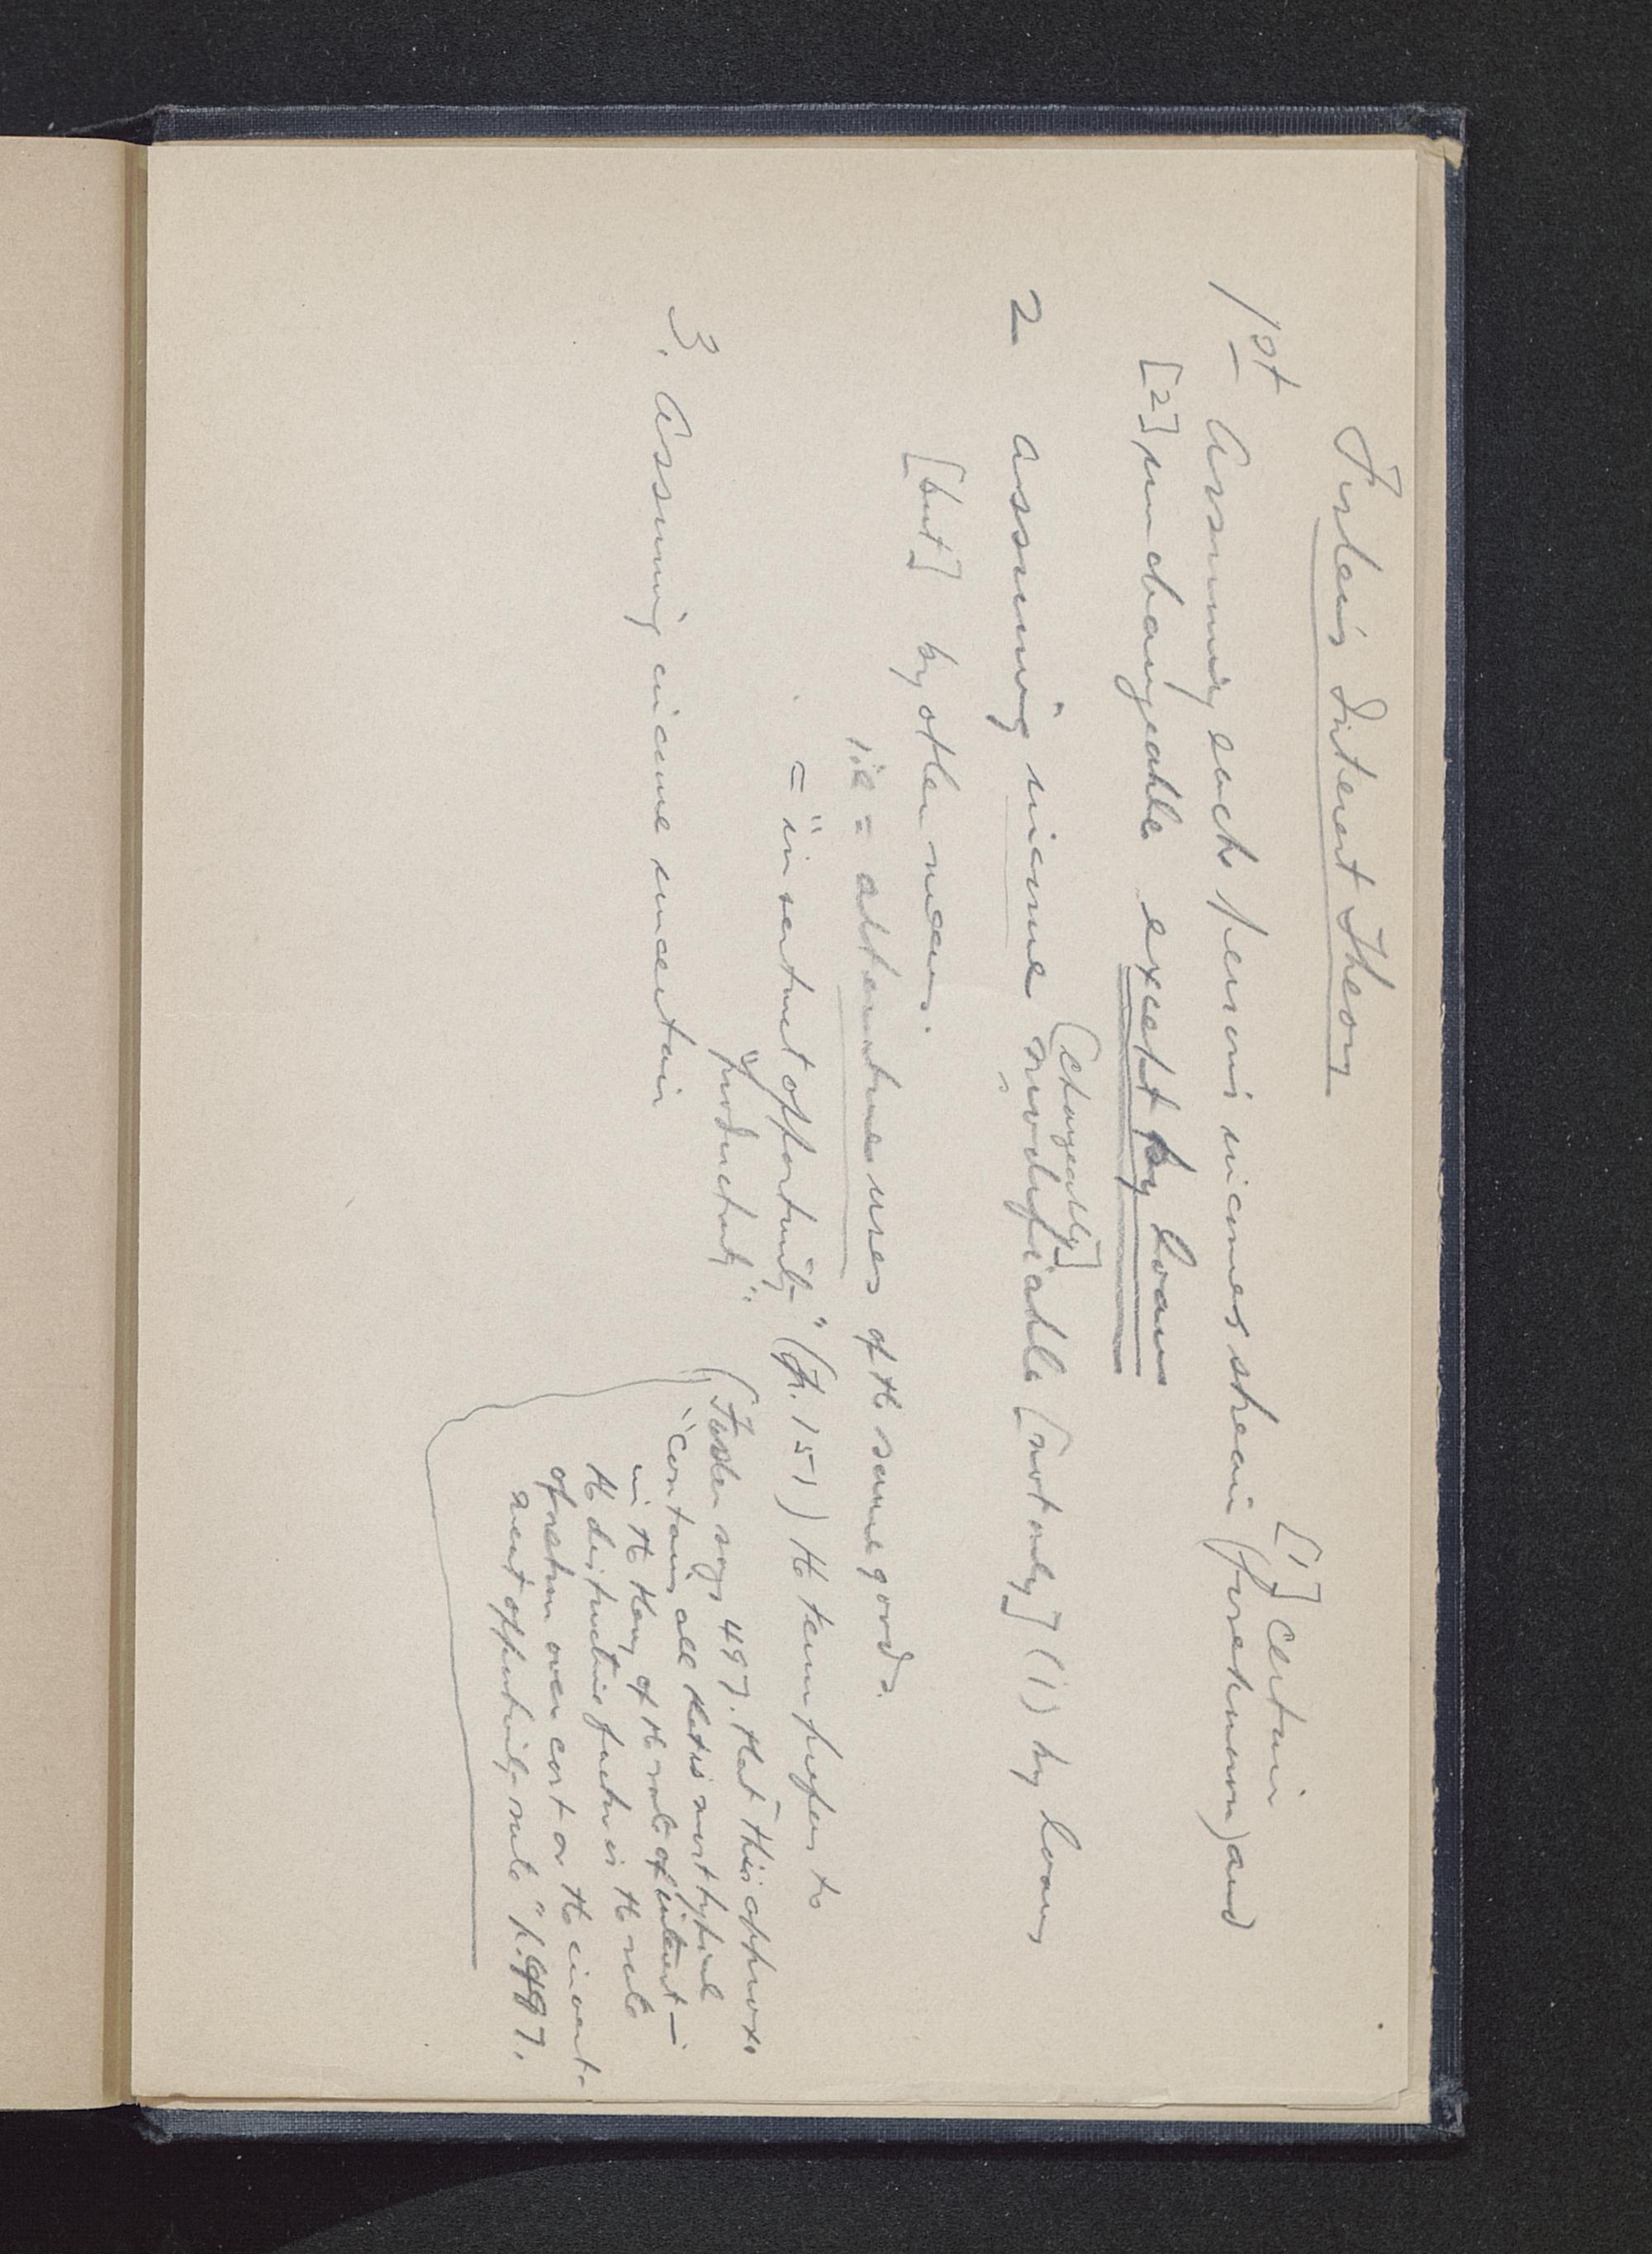 Fisher's Interest Theory
[1] certain
1st Assuming each person's incomes stream (foreknown) and
[2] unchangeable except by loans
[changeable]
2 assuming income modifiable [not only] (1) by loans
[but] by other means.
ie = alternative uses of the same goods.
= "investment opportunity" (p. 151) the term prefers to
"productivity"
(Fisher says 487. that "this approx
"contains all that is most typical
in the theory of the rate of interest —
the distinctive factor is the rate
of return over cost or the invest-
ment opportunity rate" p. 487.
3. Assuming income uncertain